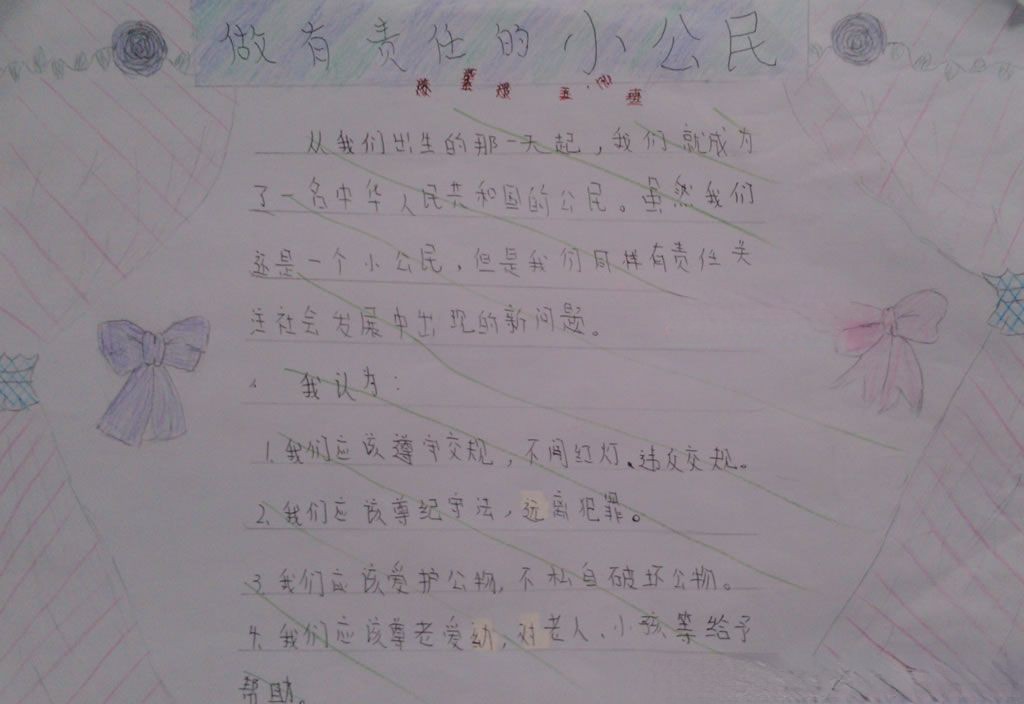 做有责任的小公民
从我们出生的那一天起，我们就成为
了一名中华人民共和国的公民。虽然我们
还是一个小公民，但是我们同样有责任关
注社会发展中出现的新问题。
我认为：
1.我们应该遵守交规，不闯红灯、违反交规。
2.我们应该尊纪守法，远离犯罪。
3.我们应该爱护公物，不私自破坏公物。
4.我们应该尊老爱幼，对老人、小孩等给予
帮助。